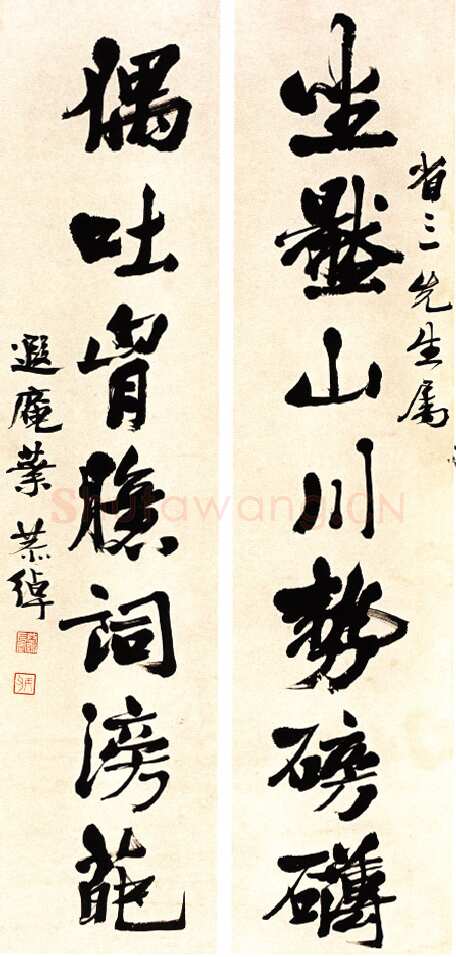 省三先生属
坐山川勢磅礴
偶吐胷臆詞滂葩
遐庵葉恭綽
Shufawang.CN